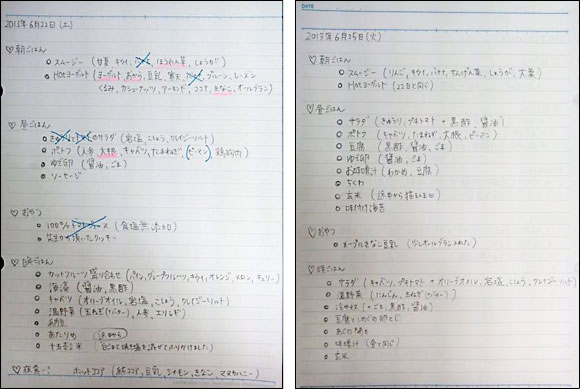 2013年6月22日(土)
♡朝ごはん
○スムージー (甘夏 キウイ ほうれん草、しょうが)
○Hotヨーグルト (ヨーグルト、おから、豆乳、寒天、プルーン、レーズン
くるみ、カシューナッツ、アーモンド、ココア、きなこ、オールブラン)
♡昼ごはん
○のサラダ (岩塩、こしょう、クレイジーソルト)
○ポトフ (人参、大根、キャベツ、たまねぎ、(ピーマン)、鶏胸肉)
○ゆで卵 (醤油、ごま)
○ソーセージ
♡おやつ
○100%トマトジュース (食塩無添加)
○頂いたクッキー
♡晩ごはん
○カットフルーツ盛り合わせ (パイン、グレープフルーツ、キウイ、オレンジ、メロン、チェリー)
○海藻 (醤油、黒酢)
○キャベツ (オリーブオイル、岩塩、こしょう、クレイジーソルト)
○温野菜 (玉ねぎ(バター)、人参、エリンギ)
○納豆
○あたりめ
♡夜食…? ホットココア (純ココア、豆乳、シナモン、きなこ、マヌカハニー)
DATE
2013年6月25日(火)
♡朝ごはん
○スムージー (りんご、キウイ、バナナ、ちんげん菜、しょうが、大葉)
○Hotヨーグルト (22日と同じ)
♡昼ごはん
○サラダ (きゅうり、プチトマト + 黒酢、醤油)
○ポトフ (キャベツ、たまねぎ、大根、ピーマン)
○豆腐 (黒酢、醤油)
○ゆで卵 (醤油、ごま)
○お味噌汁 (わかめ、豆腐)
○ちくわ
○玄米
○味付け海苔
♡おやつ
○きなこ豆乳
♡晩ごはん
○サラダ (キャベツ、プチトマト + オリーブオイル、岩塩、こしょう、クレイジーソルト)
○温野菜 (にんじん、玉ねぎ(バター))
○冷やっこ (+ごま、黒酢、醤油)
○あじの開き
○味噌汁
○玄米